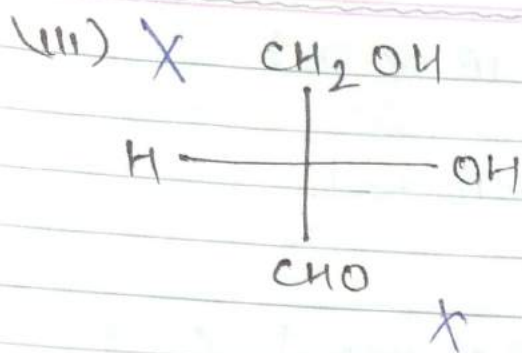 (iii) X CH₂OH
H OH
CHO
X